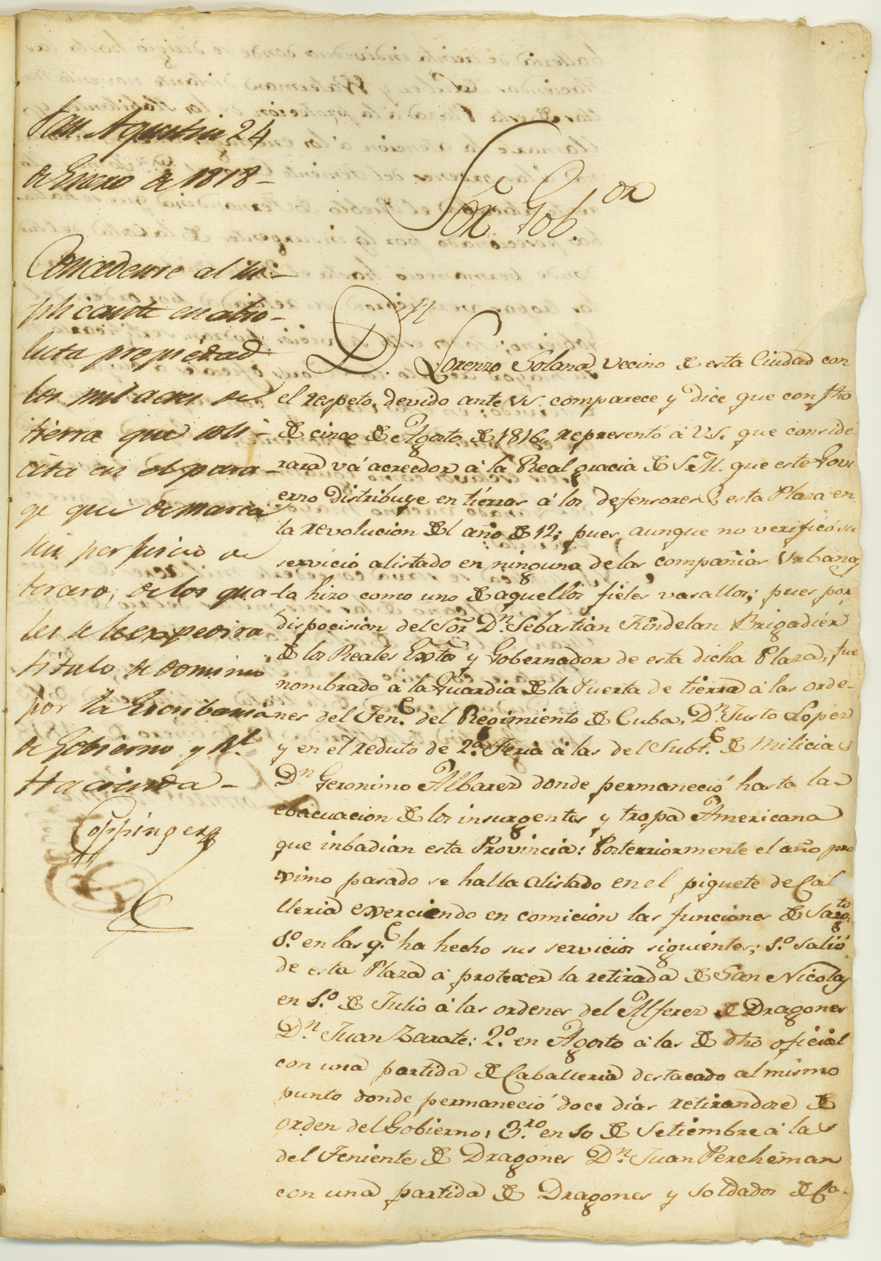 San Agustin 24
de Enero de 1818-
Concedense al su-
plicante en abso-
luta propiedad
los mil acres de
tierra que soli-
cita en el para-
ge que demarca
sin perjuicio de
tercero, de los qua-
les se le expedira
titulo de dominio
por la Escribania
de Gobierno y Rl.
Hacienda-
Coppinger
Sor. Gobor
Dn. Lorenzo Solana, vecino de esta Ciudad con
el respeto devido ante V.S. comparece y dice que con fho
de cinco de Agosto de 1816, representó á V.S. que conside
rara vá acreedor á la Real gracia de S.M. que este Gov
erno distribuye en tierras á los defensores de esta Plaza en
la revolucion del año de 12; pues aunque no verificó su
servicio alistado en ninguna de las compañias Urbanas
la hizo como uno de aquellos fieles vasallos; pues por
dispocision del Sor. Dn. Sebastian Kindelan Brigadiér
de los Reales Extos y Gobernador de esta dicha Plaza, fue
nombrado á la Guardia de la Puerta de tierra á las orde-
nes del Tene. del Regimiento de Cuba, Dn. Justo Lopez
y en el reduto de 2a. Feria á las del Subte. de Milicias
Dn Geronimo Albarez donde permaneció hasta la
ebacuacion de los insurgentes y tropa Americana
que inbadian esta Provincia: Posterriormente el año pro
ximo pasado se halla alistado en el piquete de Cal
lleria exerciendo en comición las funciones de Sargto.
1o. en las qe. ha hecho sus servicios siguientes; 1o. salió
de esta Plaza á protexer la retirada de San Nicolas
en 1o. de Julio á las ordenes del Alferez de Dragones
Dn Juan Zarate: 2o. en Agosto á las de dho oficial
con una partida de Caballeria destacado al mismo
punto donde permaneció doce dias retirandose de
orden del Gobierno; 3ro. en 10 de Setiembre á las
del Teniente de Dragones Dn. Juan Percheman
con una partida de Dragones y soldados de Ca-